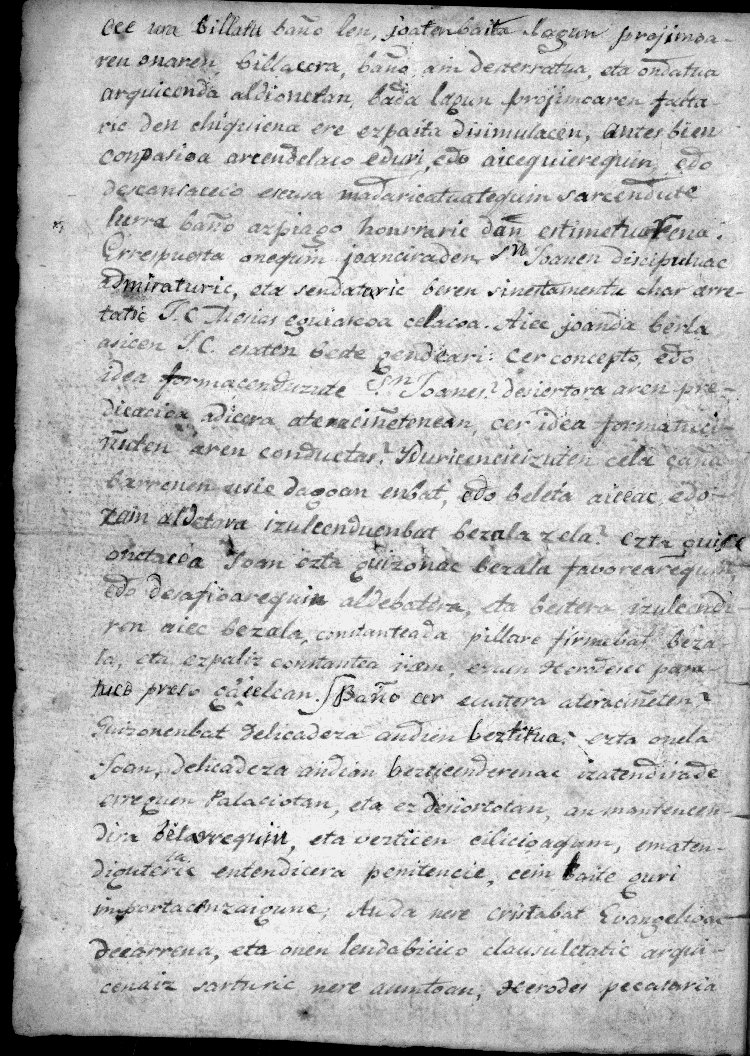 cec ura billatu baño len, joatenbaita lagun projimoa-
ren onaren, billacera, baño, ain desterratua, eta ondatua
arquicenda aldionetan, bada lagun projimoaren falta-
ric den chiquiena ere ezpaita disimulacen, antes bien
conpasioa arcendelaco eduri, edo aicequierequin, edo
descansaceco escusa madaricatuatequin sarcendute
lurra baño azpiago honrraric dan estimetuarena.
Errespuesta onequin joanciraden Sn Joanen discipuluac
admiraturic, eta sendataric beren sinestamentu char arre-
tatic J.C. Mesias eguiascoa celacoa. Aiec joanda berla
asicen J.C. esaten bere gendeari: cer concepto, edo
idea formacenduzute Sn Joanes? desiertora aren pre-
dicacioa adicera ateraciñetenean, cer idea formatuci-
ñuten aren conductas? Iduricenciizuten cela caña-
barrenen usic dagoan enbat, edo beleta aiceac edo-
zain aldetara izulcenduenbat bezala zela? Ezta guisc
onetacoa Joan ezta guizonac bezala favorearequin,
edo desafioarequin aldebatera, eta bestera izulcendi-
ren aiec bezala, constanteada pillare firmebat beza-
la, eta ezpaliz constantea izen, ezun Herodesec para-
tuco preso gaicelean. Baño cer ecustera ateraciñeten?
Guizonenbat delicadeza andien beztitua; ezta onela
Joan, delicadeza andian bezticenderenac izatendirade
erreguen Palaciotan, eta ez desiortotan, an mantencen-
dira belarrequin, eta vezticen cilicioaqum, ematen-
diguteric entendicera penitencie, cein baite guri
importacenzaigune; Auda nere cristabat Evangelioac
decarrena, eta onen lendabicico clausuletatic arqui-
cenaiz sarturic nere auntoan; Herodes pecataria